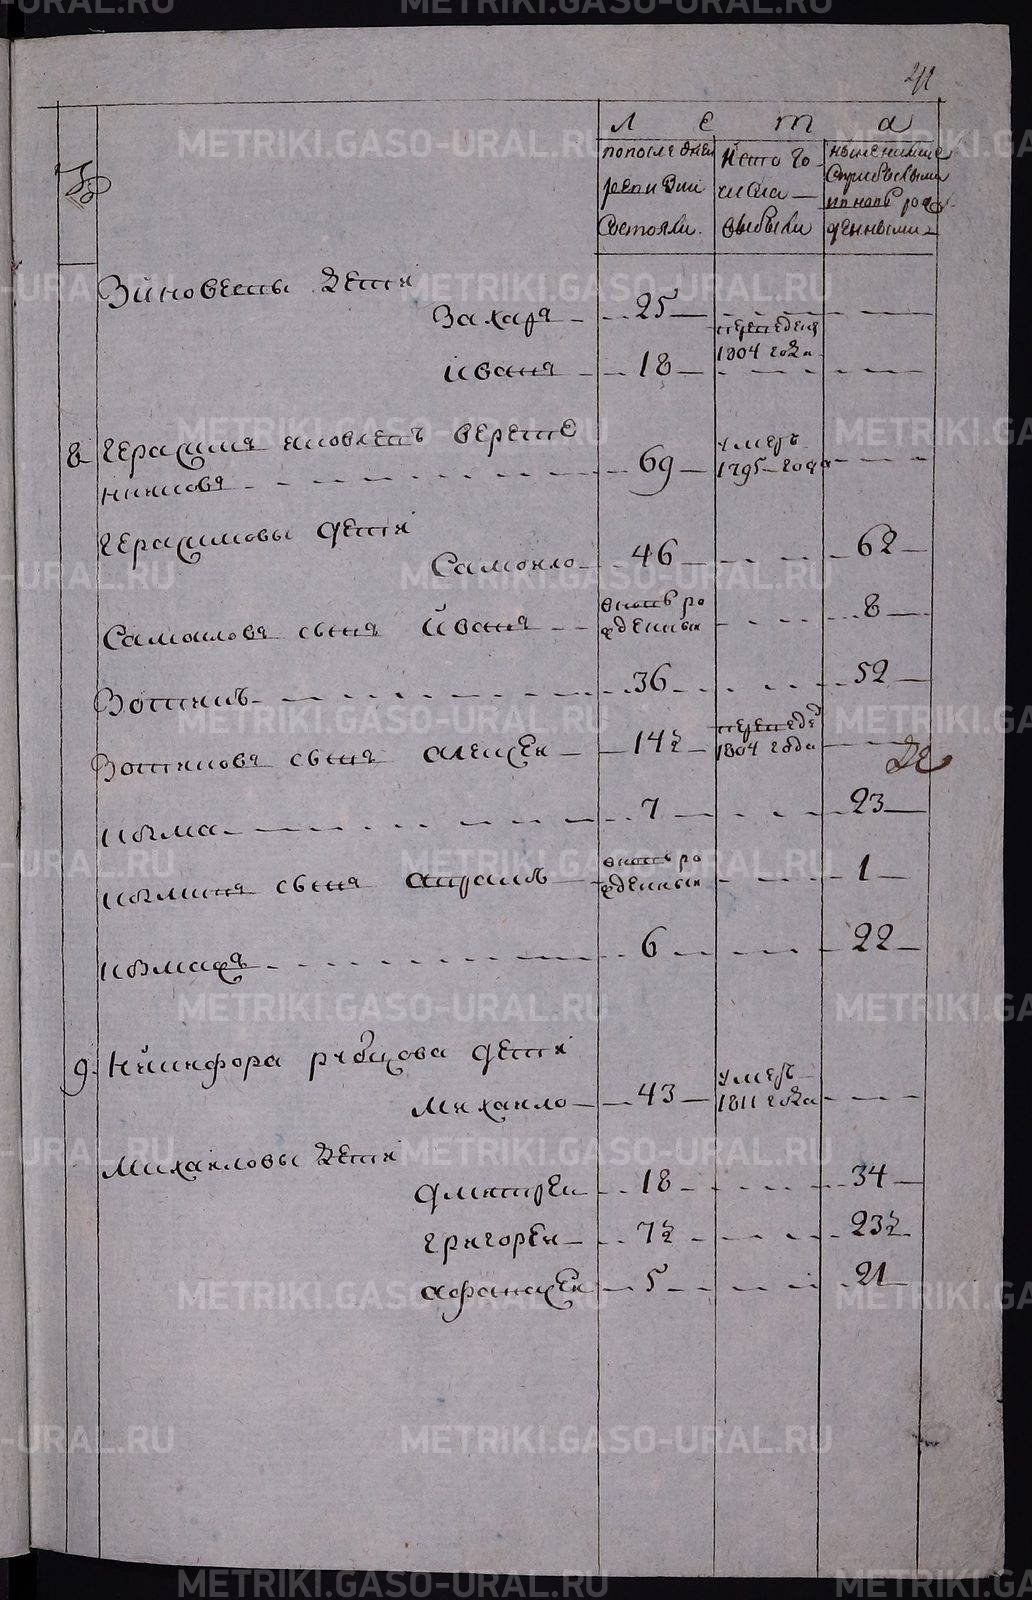 Л е т а
№
по последней ревизии состояли.
Ис того числа выбыли
ныне налицо с прибылыми и вновь рожденными
Зиновевы дети
Захаръ 25
переведен 1804 года
Иванъ 18
8 Герасимъ яковлевъ веретенниковъ 69 умеръ 1795 года
Герасимовы дети
Самойло 46 62
Самоиловъ сынъ Иванъ вновь рожденный 8
Вотинъ 36 52
Вотиновъ сынъ алексеи 14½ переведен 1804 года
козма 7 23
козминъ сынъ вновь рожденный 1
6 22
9. Никифора рябцова дети
Михаило 43 умеръ 1811 года
Михаиловы дети
дмитреи 18 34
григореи 7½ 23½
афанасеи 5 21
METRIKI.GASO-URAL.RU